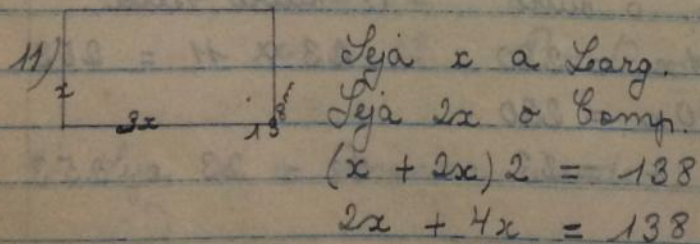 11)
x
2x
138m
Seja x a Larg.
Seja 2x o Comp.
(x + 2x) 2 = 138
2x + 4x = 138